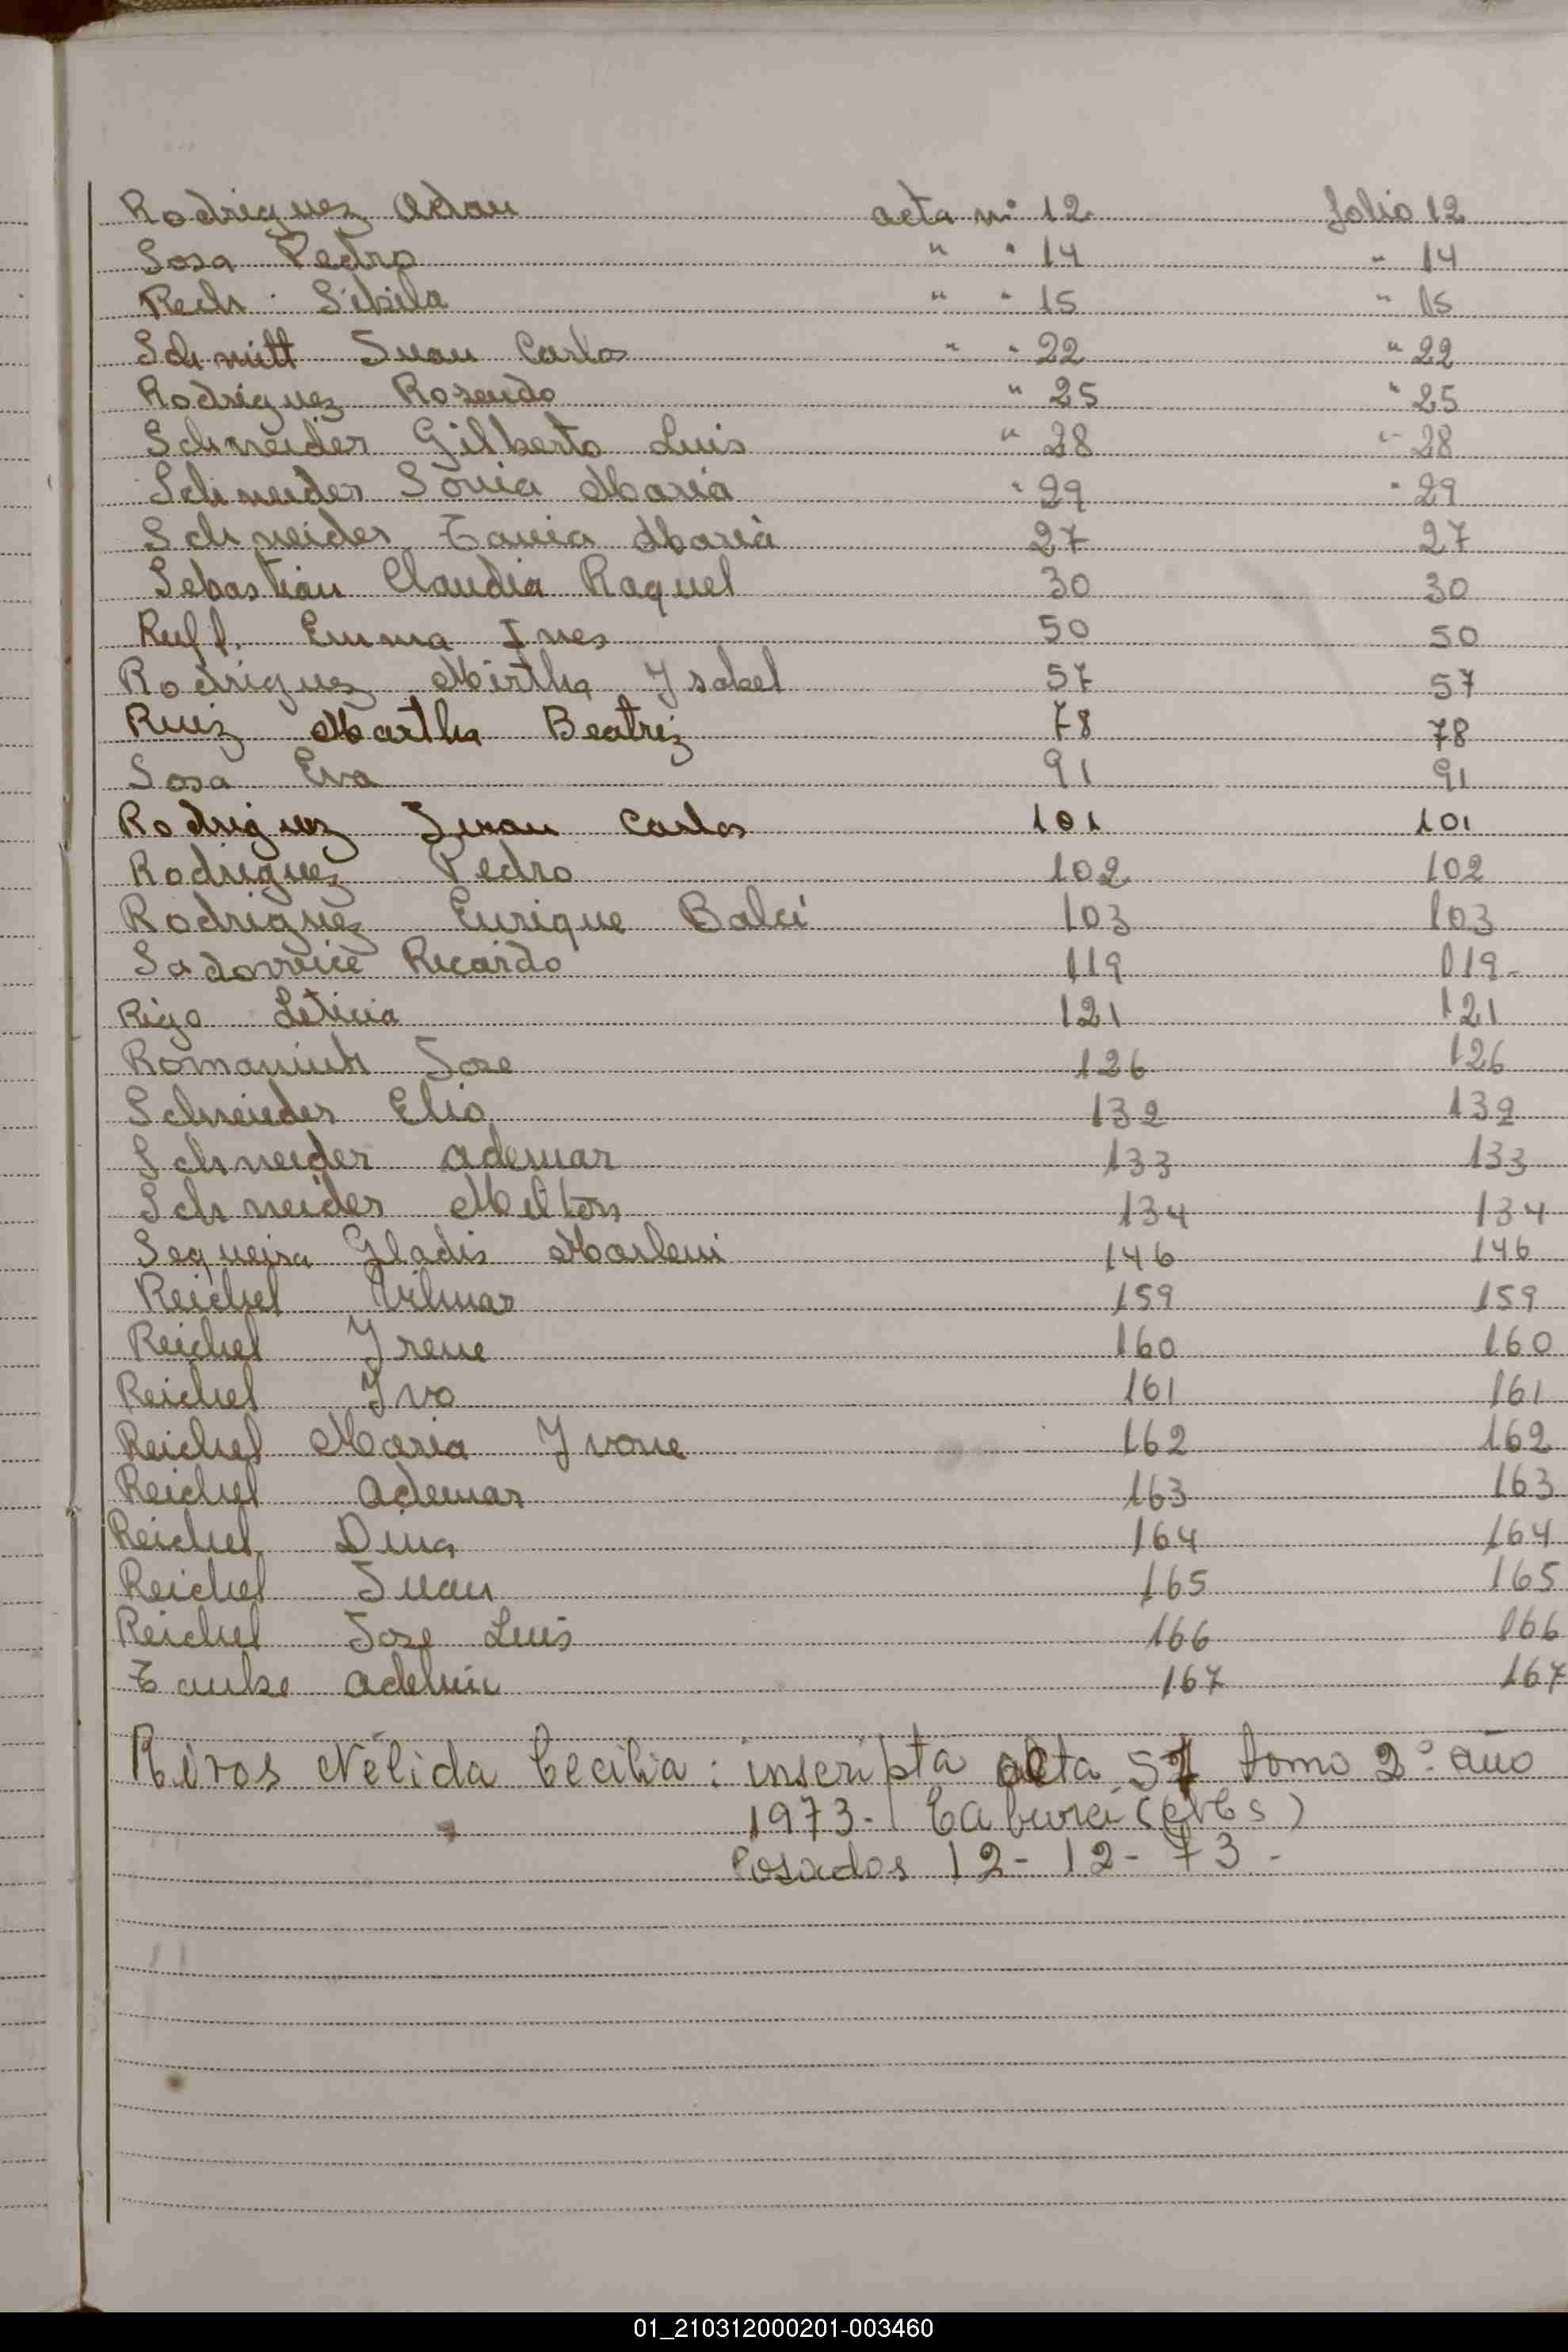 Rodriguez Adan acta nº 12 folio 12
Sosa Pedro " " 14 " 14
Rech Sibila " " 15 " 15
Schmitt Juan Carlos " " 22 " 22
Rodriguez Rosendo " 25 " 25
Schneider Gilberto Luis " 28 " 28
Schneider Sonia Maria " 29 " 29
Schneider Tania Maria 27 27
Sebastian Claudia Raquel 30 30
Ruff. Emma Ines 50 50
Rodriguez Mirtha Ysabel 57 57
Ruiz Martha Beatriz 78 78
Sosa Eva 91 91
Rodriguez Juan Carlos 101 101
Rodriguez Pedro 102 102
Rodriguez Enrique Balci 103 103
Ricardo 119 119-
Rigo Leticia 121 121
Romaniuk Jose 126 126
Schneider Elio 132 132
Schneider Ademar 133 133
Schneider Milton 134 134
Sequeira Gladis Marleni 146 146
Reichel Vilmar 159 159
Reichel Yrene 160 160
Reichel Yvo 161 161
Reichel Maria Yvone 162 162
Reichel Ademar 163 163
Reichel Dina 164 164
Reichel Juan 165 165
Reichel Jose Luis 166 166
167 167
Nélida Cecilia: inscripta acta tomo 2º año
1973- Caburei
Posadas 12-12-73-
01_210312000201-003460